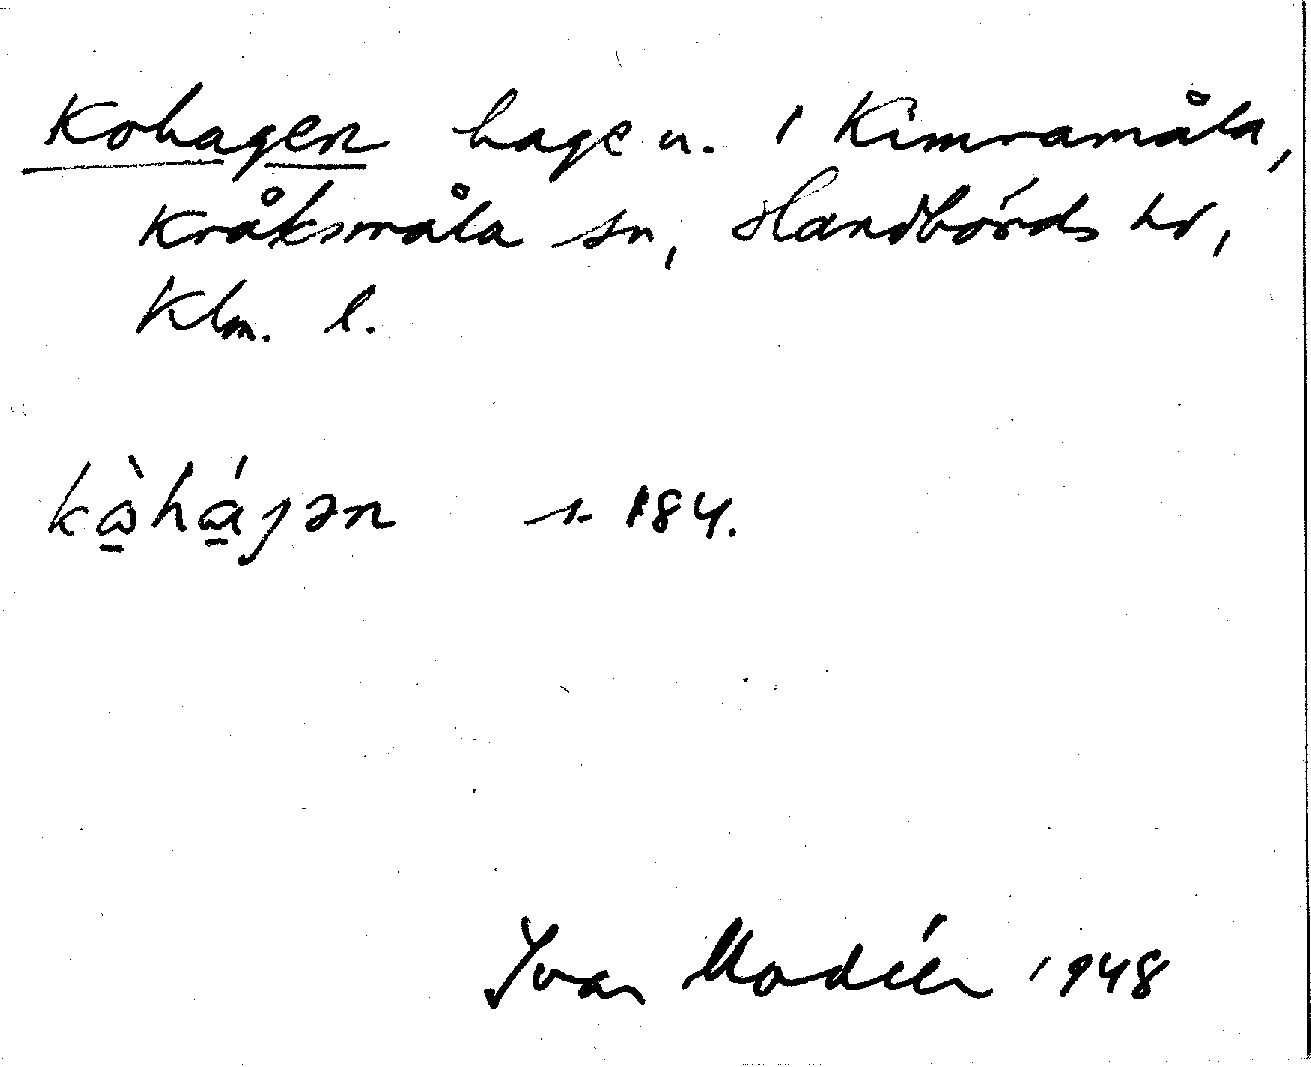 Kohagen hage n. i Kimramåla,
Kråksmåla sn, Handbörds hd,
Klm. l.
kàhájən s. 184.
Ivar Modéer 1948